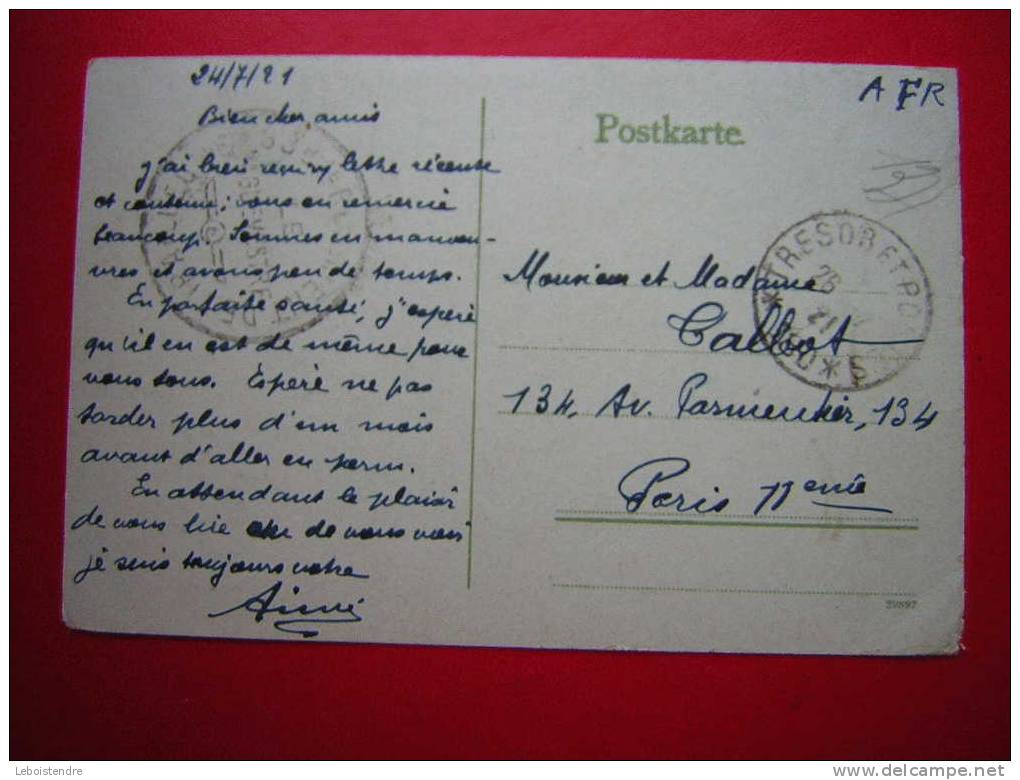 24/7/21
Bien cher amis
J'ai bien reçu vy lettre récente
et contenu; vous en remercie
beaucoup. Sommes en manœu-
vres et avons peu de temps.
En parfaite santé, j'espère
qu'il en est de même pour
vous tous. Espère ne pas
tarder plus d'un mois
avant d'aller en perm.
En attendant le plaisir
de vous lire ou de vous voir
je suis toujours votre
Aimé
A FR
Postkarte.
TRESOR ET POSTES
Monsieur et Madame
Talbot
134, Av. Parmentier, 134
Paris 11eme
Leboistendre